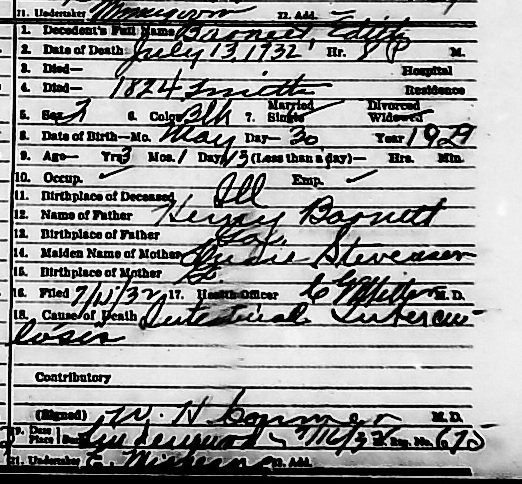 21. Undertaker 22. Add.
1. Decedent's Full Name Barnett Edith
2. Date of Death July 13, 1932 Hr. 8 P M.
3. Died— Hospital
4. Died— 1824 Smith Residence
5. Sex F 6. Color Blk 7. Married Single Divorced Widowed
8. Date of Birth—Mo. May Day— 30 Year 1929
9. Age— Yrs 3 Mos. 1 Days 13 (Less than a day)— Hrs. Min.
10. Occup. Emp.
11. Birthplace of Deceased Ill
12. Name of Father Henry Barnett
13. Birthplace of Father Ga.
14. Maiden Name of Mother Stevenson
15. Birthplace of Mother
16. Filed 7/15/32 17. Health Officer M. D.
18. Cause of Death Intestinal Tubercu-
losis
Contributory
(Signed) W. H. M. D.
19. Date Place 7/16/32 Reg. No. 675
21. Undertaker 22. Add.